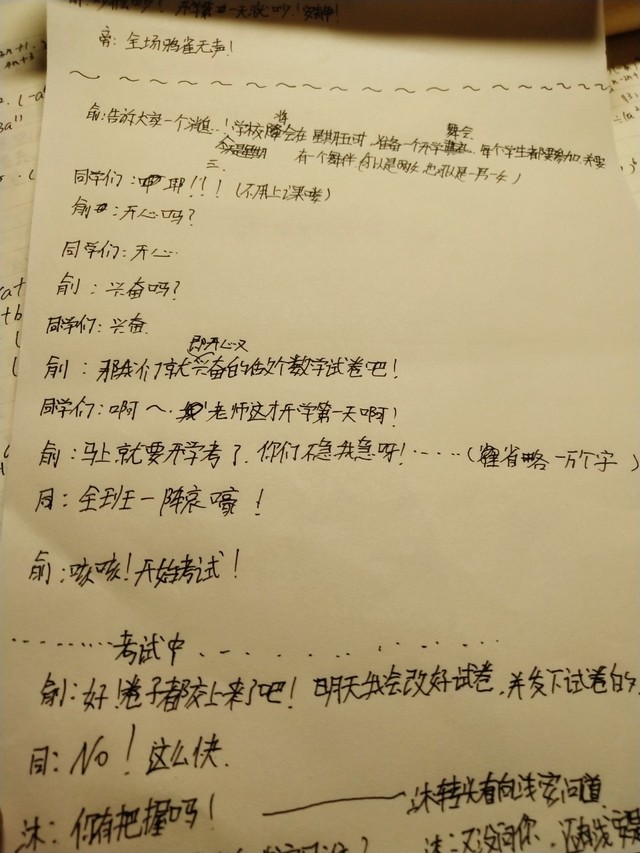 开学第一天就吵！安静！
旁：全场鸦雀无声！
～～～～～～～～～～～～～～～
俞：告诉大家一个消息..！学校将会在星期五时，准备一个开学舞会，每个学生都要参加，并要
今天是星期三
有一个舞伴（可以是两女也可以是一男一女）
同学们：耶！！！（不用上课喽）
俞：开心吗？
同学们：开心.
俞：兴奋吗？
同学们：兴奋.
俞：那我们就即开心又兴奋的做个数学试卷吧！
同学们：啊～.老师这才开学第一天啊！
俞：马上就要开学考了，你们不急我急呀！……（省略一万个字）
同：全班一阵哀嚎！
俞：咳咳！开始考试！
………考试中………
俞：好！卷子都交上来了吧！明天我会改好试卷，并发下试卷的
同：No！这么快.
沐：你有把握吗！——沐转头看向浅安问道
沐：又没问你，